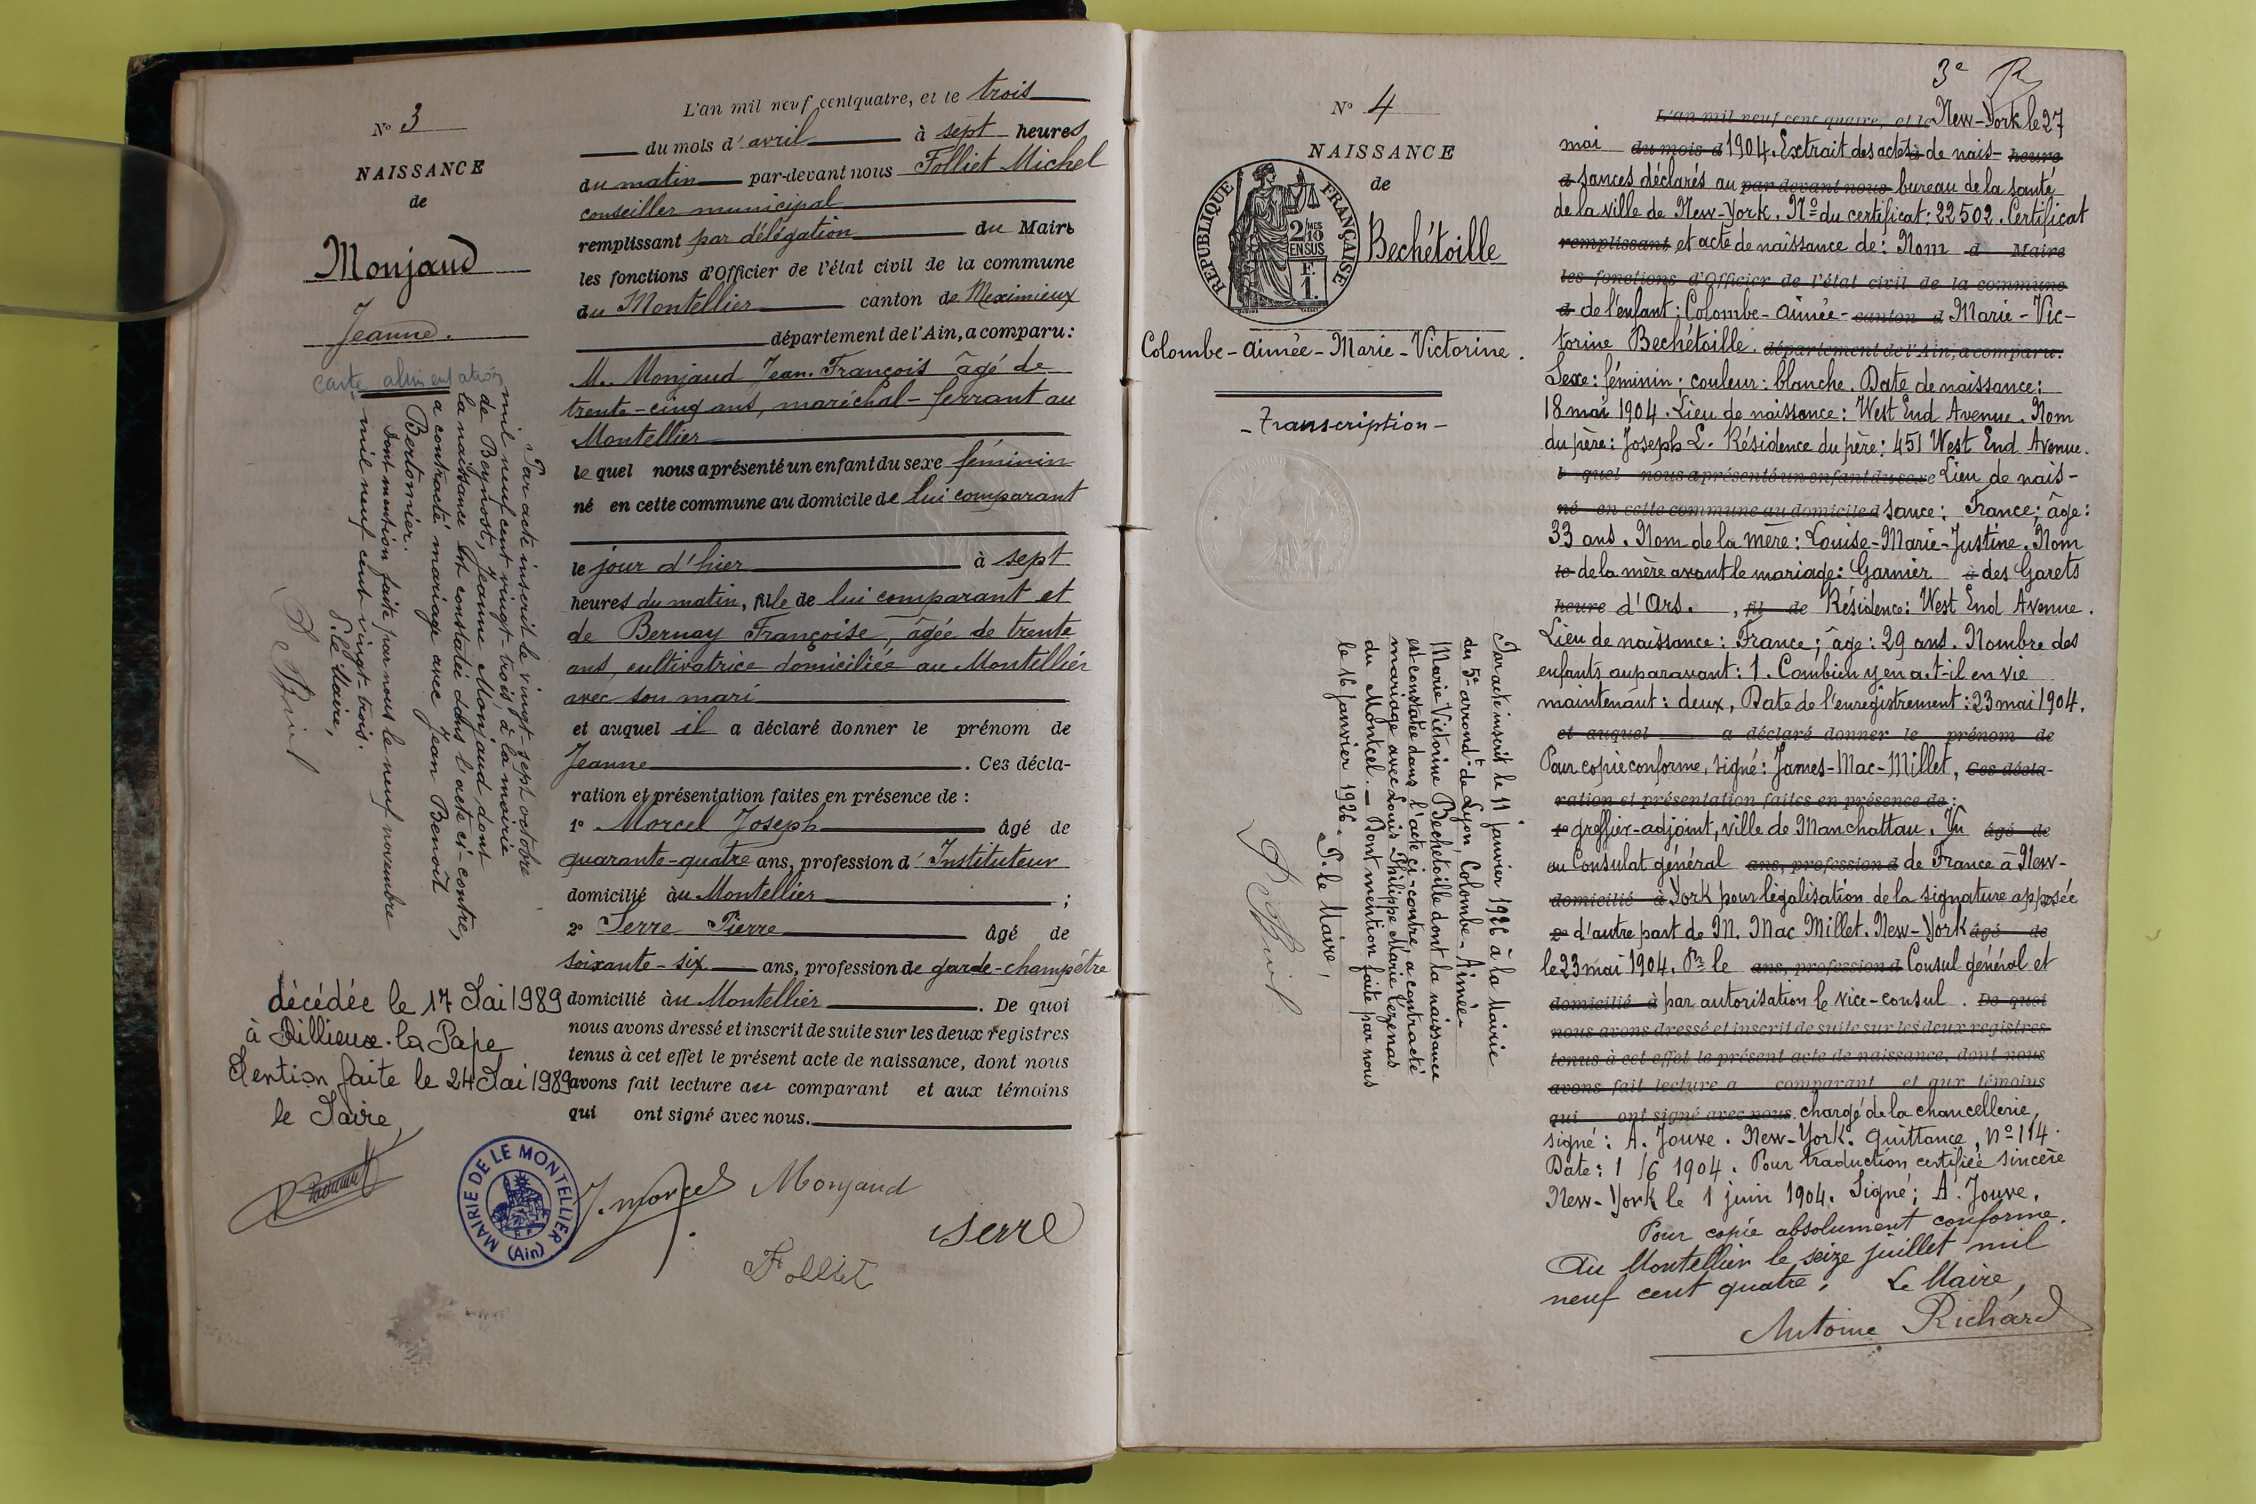 N° 3
NAISSANCE
de
Monjaud
Jeanne.
carte alimentation
Par acte inscrit le vingt-sept octobre
mil neuf cent vingt-trois, à la mairie
de Beynost, Jeanne Monjaud dont
la naissance est constatée dans l'acte ci-contre,
a contracté mariage avec Jean Benoît
Bertonnier.
Dont mention faite par nous le neuf novembre
mil neuf cent vingt-trois.
P. le Maire,
décédée le 17 Mai 1989
à Rillieux-la Pape
Mention faite le 24 Mai 1989
le Maire,
MAIRIE DE LE MONTELLIER
(Ain)
L'an mil neuf cent quatre, et le trois
du mois d'avril à sept heures
du matin par-devant nous Folliet Michel
conseiller municipal
remplissant par délégation du Maire
les fonctions d'Officier de l'état civil de la commune
du Montellier canton de Meximieux
département de l'Ain, a comparu:
M. Monjaud Jean-François âgé de
trente-cinq ans, maréchal-ferrant au
Montellier
le quel nous a présenté un enfant du sexe féminin
né en cette commune au domicile de lui comparant
le jour d'hier à sept
heures du matin, fille de lui comparant et
de Bernay Françoise, âgée de trente
ans, cultivatrice domiciliée au Montellier
avec son mari
et auquel il a déclaré donner le prénom de
Jeanne. Ces décla-
ration et présentation faites en présence de :
1° Morcel Joseph âgé de
quarante-quatre ans, profession d'Instituteur
domicilié àu Montellier ;
2° Serre Pierre âgé de
soixante-six ans, profession de garde-champêtre
domicilié àu Montellier. De quoi
nous avons dressé et inscrit de suite sur les deux registres
tenus à cet effet le présent acte de naissance, dont nous
avons fait lecture au comparant et aux témoins
qui ont signé avec nous.
J. Morcel Monjaud
Serre
Folliet
N° 4
NAISSANCE
de
RÉPUBLIQUE FRANÇAISE
2/10 MES
EN SUS
F.
1.
Bechétoille
Colombe-Aimée-Marie-Victorine.
-Transcription-
Par acte inscrit le 11 janvier 1926 à la Mairie
du 5e arrondt de Lyon, Colombe-Aimée-
Marie-Victorine Bechétoille dont la naissance
est constatée dans l'acte ci-contre, a contracté
mariage avec Louis Philippe Marie Lezenas
du Montcel.- Dont mention faite par nous
le 16 janvier 1926. P. le Maire,
3e R
L'an mil neuf cent quatre, et le New-York le 27
mai du mois d 1904. Extrait des actes à de nais- heure
d sances déclarés au par devant nous bureau de la santé
de la ville de New-York. N° du certificat: 22502. Certificat
remplissant et acte de naissance de: Nom d Maire
les fonctions d'Officier de l'état civil de la commune
d de l'enfant: Colombe-Aimée- canton d Marie-Vic-
torine Bechétoille. département de l'Ain, a comparu:
Sexe: féminin; couleur: blanche. Date de naissance:
18 mai 1904. Lieu de naissance: West End Avenue. Nom
du père: Joseph L. Résidence du père: 451 West End Avenue.
l quel nous a présenté un enfant du sexe Lieu de nais-
né en cette commune au domicile d sance: France; âge:
33 ans. Nom de la mère: Louise-Marie-Justine. Nom
le de la mère avant le mariage: Garnier à des Garets
heure d'Ars. , fil de Résidence: West End Avenue.
Lieu de naissance: France; âge: 29 ans. Nombre des
enfants auparavant: 1. Combien y en a-t-il en vie
maintenant: deux, Date de l'enregistrement: 23 mai 1904.
et auquel a déclaré donner le prénom de
Pour copie conforme, signé: James-Mac-Millet, Ces décla-
ration et présentation faites en présence de :
1° greffier-adjoint, ville de Manchattau. Vu âgé de
au Consulat général ans, profession d de France à New-
domicilié à York pour légalisation de la signature apposée
2° d'autre part de M. Mac Millet. New-York âgé de
le 23 mai 1904. Pr le ans, profession d Consul général et
domicilié à par autorisation le vice-consul. De quoi
nous avons dressé et inscrit de suite sur les deux registres
tenus à cet effet le présent acte de naissance, dont nous
avons fait lecture a comparant et aux témoins
qui ont signé avec nous. chargé de la chancellerie,
signé: A. Jouve. New-York. Quittance, N° 114.
Date: 1/6 1904. Pour traduction certifiée sincère
New-York le 1 juin 1904. Signé; A. Jouve.
Pour copie absolument conforme.
Au Montellier le seize juillet mil
neuf cent quatre, Le Maire,
Antoine Richard